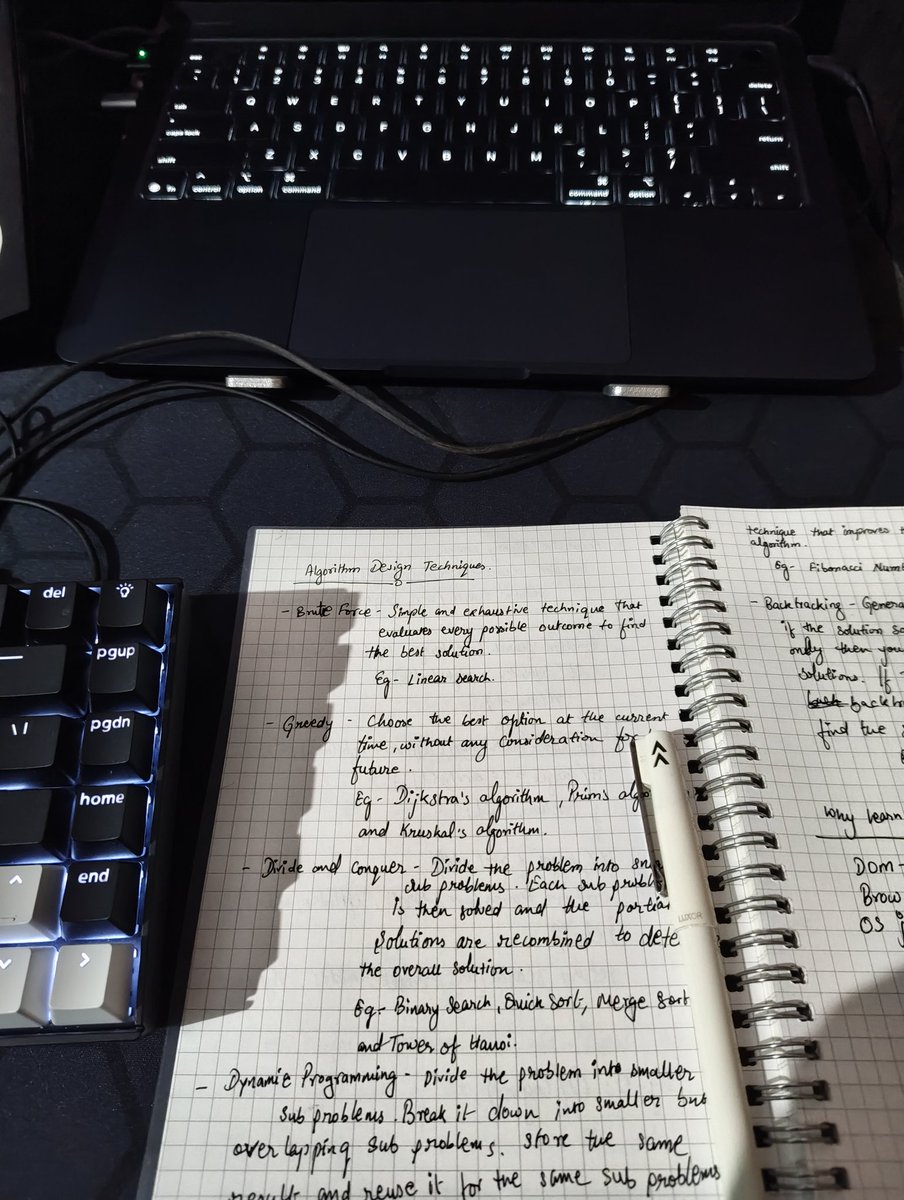 delete
tab
Q W E R T Y U I O P
caps lock
A S D F G H J K L
return
shift
Z X C V B N M
shift
fn control option command
command option
del
pgup
pgdn
home
end
Algorithm Design Techniques.
- Brute Force - Simple and exhaustive technique that
evaluates every possible outcome to find
the best solution.
Eg - Linear search.
- Greedy - Choose the best option at the current
time, without any consideration for
future.
Eg - Dijkstra's algorithm, Prim's algo
and Kruskal's algorithm.
- Divide and Conquer - Divide the problem into
sub problems. Each sub
is then solved and the
solutions are recombined to
the overall solution.
Eg - Binary Search, Quick Sort, Merge Sort
and Tower of Hanoi.
- Dynamic Programming - Divide the problem into smaller
sub problems. Break it down into smaller but
overlapping sub problems. Store the same
result and reuse it for the same sub problems
LUXOR
technique that improves
algorithm.
Eg - Fibonacci
- Backtracking -
if the solution
only then you
solutions. If
find the
Why learn
DOM
OS